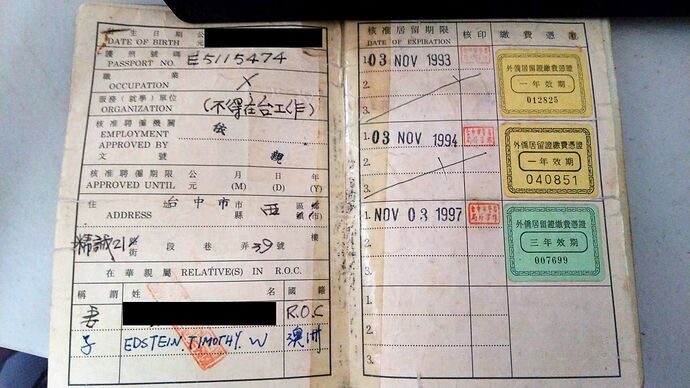 出生日期 公元
DATE OF BIRTH
護照號碼
PASSPORT NO. E5115474
職業
OCCUPATION X
服務(就學)單位
ORGANIZATION (不得在台工作)
核准聘僱機關
EMPLOYMENT
APPROVED BY
文號 親
核准聘僱期限 公元 月 日 年
APPROVED UNTIL (M) (D) (Y)
住址 台中 市縣 西 區鄉鎮(市)
ADDRESS
精誠21 路街 段 巷 弄 39 號 樓
在華親屬 RELATIVE(S) IN R.O.C.
稱謂 姓名 國籍
妻 R.O.C
子 EDSTEIN TIMOTHY W 澳洲
核准居留期限 核印 繳費憑證
DATE OF EXPIRATION
1. 03 NOV 1993
2.
3.
外僑居留證繳費憑證
一年效期
012825
1. 03 NOV 1994
2.
3.
外僑居留證繳費憑證
一年效期
040851
1. NOV 03 1997
2.
3.
外僑居留證繳費憑證
三年效期
007699
1.
2.
3.